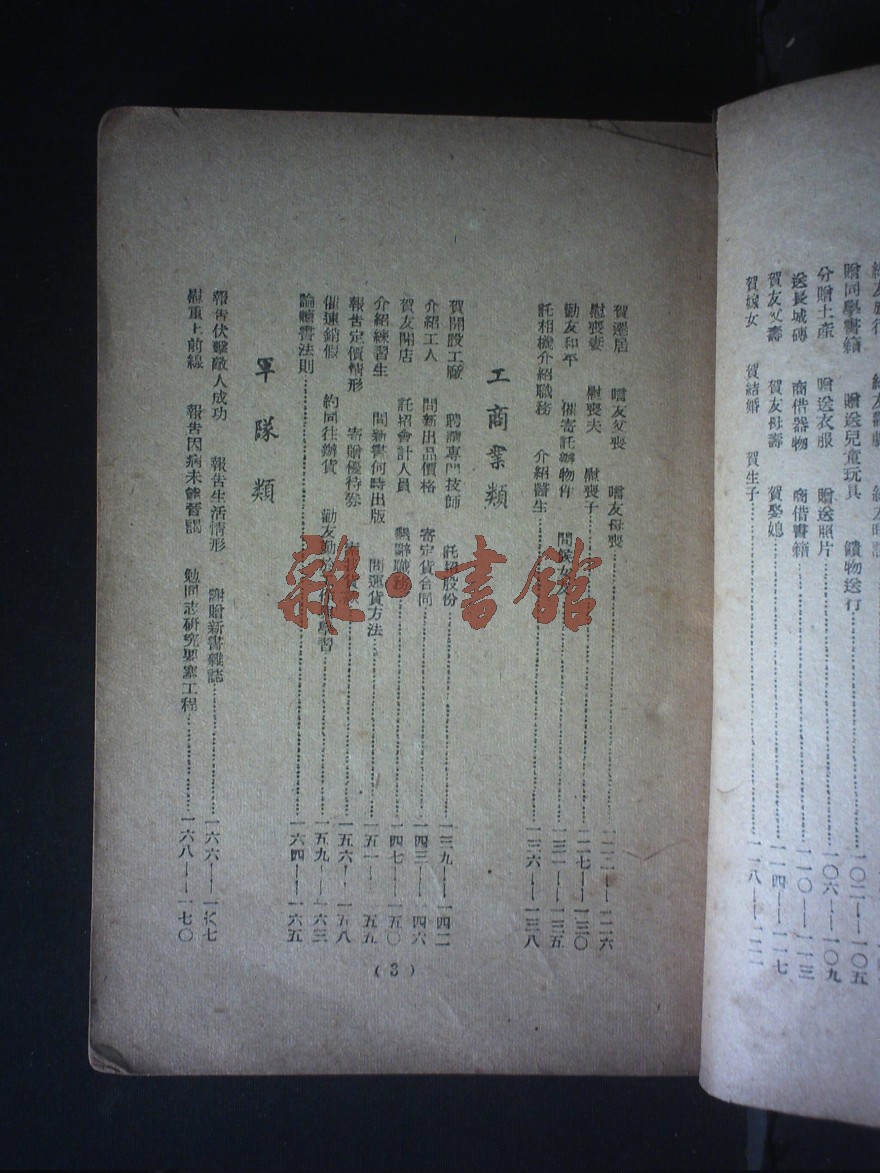 贈同學書籍　贈送兒童玩具　饋物送行……一〇二——一〇五
分贈土產　贈送衣服　贈送照片……一〇六——一〇九
送長城磚　商借器物　商借書籍……一一〇——一一三
賀友父壽　賀友母壽　賀娶媳……一一四——一一七
賀嫁女　賀結婚　賀生子……一一八——一二一
賀遷居　唁友父喪　唁友母喪……一二二——一二六
慰喪妻　慰喪夫　慰喪子……一二七——一三〇
勸友和平　催寄託辦物件　問候女友……一三一——一三五
託相機介紹職務　介紹醫生……一三六——一三八
工商業類
賀開設工廠　聘請專門技師　託招股份……一三九——一四二
介紹工人　問新出品價格　寄定貨合同……一四三——一四六
賀友開店　託招會計人員　懇辭職務……一四七——一五〇
介紹練習生　問新書何時出版　問運貨方法……一五一——一五五
報告定價情形　寄贈優待券……一五六——一五八
催速銷假　約同往辦貨　勸友勤……學習……一五九——一六三
論牘書法則……一六四——一六五
軍隊類
報告伏擊敵人成功　報告生活情形　謝贈新書雜誌……一六六——一六七
慰重上前線　報告因病未能晉謁　勉同志研究要塞工程……一六八——一七〇
(3)
雜·書館